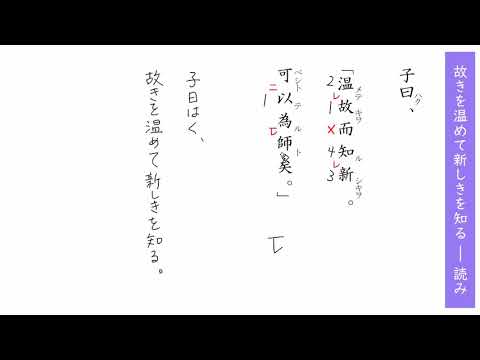 故きを温めて新しきを知る ― 読み
子曰ハク、
「温メテ故キヲ而知ル新シキヲ。
2レ1×4レ3
可ベシト以テ為ル師ト矣。」
二1レ
レ
子曰はく、
故きを温めて新しきを知る。